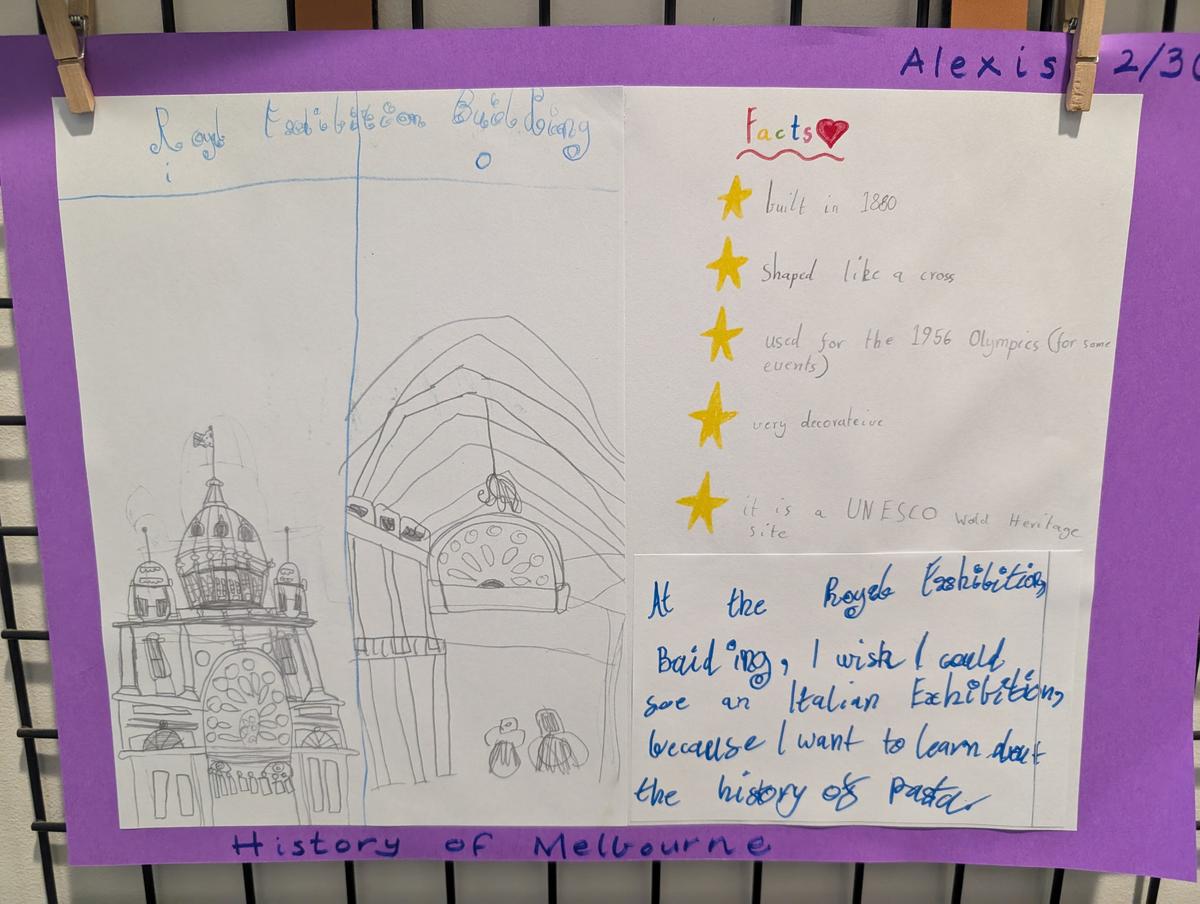 Alexis 2/30
Royal Exhibition Building
i o
Facts
built in 1880
shaped like a cross
used for the 1956 Olympics (for some
events)
very decorateive
it is a UNESCO World Heritage
site
At the Royal Exhibition
Building, I wish I could
see an Italian Exhibition,
because I want to learn about
the history of Pasta
History of Melbourne